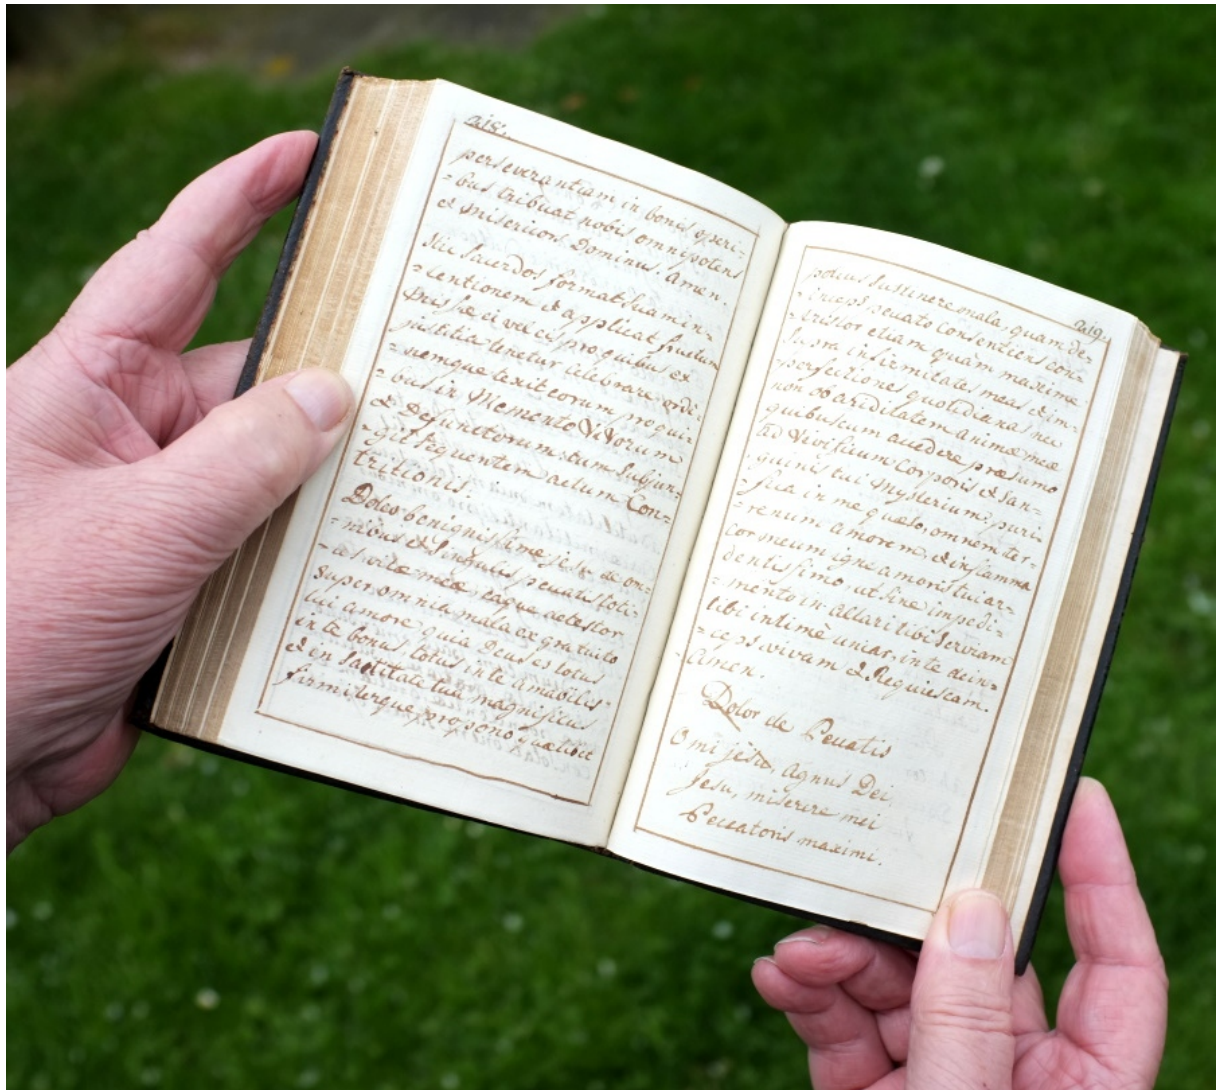 218.
perseverantiam in bonis operi-
=bus tribuat nobis omnipotens
& misericors Dominus. Amen.
Hic sacerdos format suam in-
=tentionem & applicat fructum
Missæ ei vel eis pro quibus ex
justitia tenetur celebrare, ordi-
=nemque texit eorum pro qui-
=bus in Memento Vivorum
& Defunctorum. tum subjun-
=git sequentem actum Con-
tritionis.
Doleo benignissime jesu de om-
=nibus & singulis peccatis toti-
=us vitæ meæ, eaque detestor
super omnia mala ex gratuito
tui amore quia Deus es totus
in te bonus, totus in te amabilis
& in sanctitate tua magnificus
firmiterque propono quælibet
219.
potius sustinere mala, quam de-
=inceps peccato consentiens, con-
=tristor etiam quam maxime
supra infirmitates meas & im-
=perfectiones quotidianas nec
non ob ariditatem animæ meæ
quibuscum accedere præsumo
ad Vivificum Corporis & San-
=guinis tui Mysterium: puri-
=fica in me quæso, omnem ter-
=renum amorem, & inflamma
cor meum igne amoris tui ar-
dentissimo ut sine impedi-
=mento in altari tibi serviam
tibi intimè uniar, in te dein-
=ceps vivam & Requiescam.
Amen.
Dolor de Peccatis
O mi jesu, Agnus Dei,
Jesu, miserere mei
Peccatoris maximi.